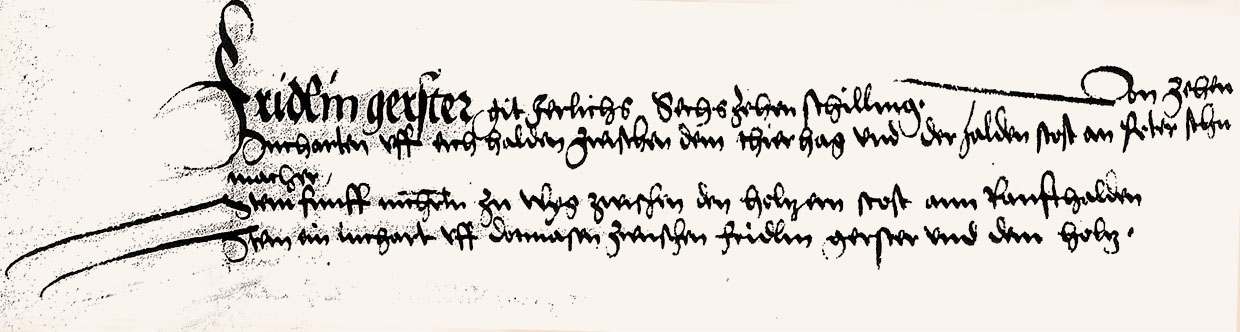 Fridlin gerster git Jerlichs Sechszehen schilling. Von zehen
Jucharten vff eich halden zwischen dem thier hag vnd der halden stost an Peter schu
macher /
Item funff zu wyg zwischen den holtzern stost ann Ranfthalden
Item ein Juchart vff dotmasen zwischen fridlin gerster vnd dem holtz.